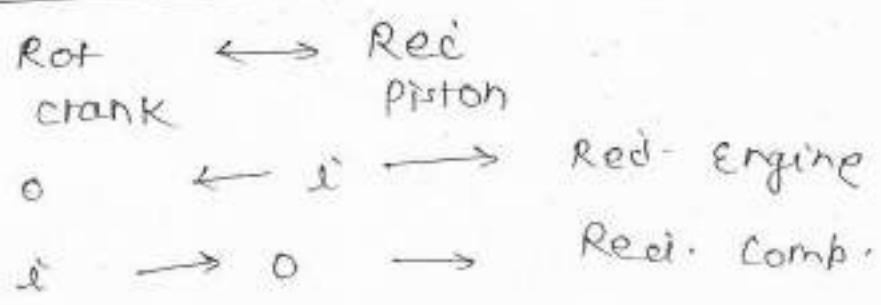 Rot ↔ Reci
crank piston
o ← i → Reci- Engine
i → o → Reci. Comp.